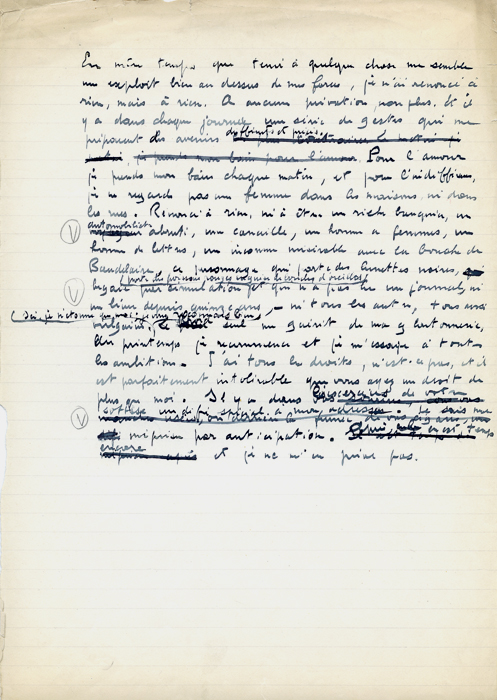 En même temps que tenir à quelque chose me semble
un exploit bien au dessus de mes forces, je n'ai renoncé à
rien, mais à rien. A aucune privation, non plus. Et il
y a dans chaque journée une série de gestes qui me
préparent des avenirs
Pour l'amour
je prends mon bain chaque matin, et pour l'indifférence,
je ne regarde pas une femme dans les maisons, ni dans
les rues. Renoncé à rien, ni à être un riche banquier, un
automobiliste
abruti, une canaille, un homme à femmes, un
homme de lettres, un inconnu misérable avec la bouche de
Baudelaire, ce personnage qui porte des lunettes noires,
bégaie par simulation et qui n'a pas lu un journal, ni
un livre depuis quinze ans, ni tous les autres, tous aussi
seul me guérit de ma gloutonnerie,
Au printemps je recommence et je m'essaye à toutes
les ambitions. J'ai tous les droits, n'est-ce pas, et il
est parfaitement intolérable que vous ayez un droit de
plus que moi. Si y a dans
de votre
sottise un défi spécial à mon adresse. Je sais me
mépriser par anticipation.
encore
et je ne m'en prive pas.